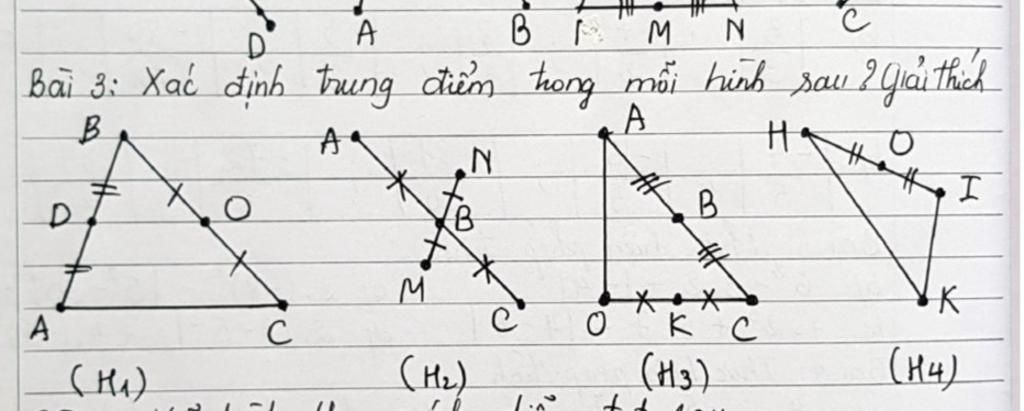 D A B M N C
Bài 3: Xác định trung điểm trong mỗi hình sau? Giải thích
B A N A H O
D O B B I
A C M C O K C K
(H1) (H2) (H3) (H4)